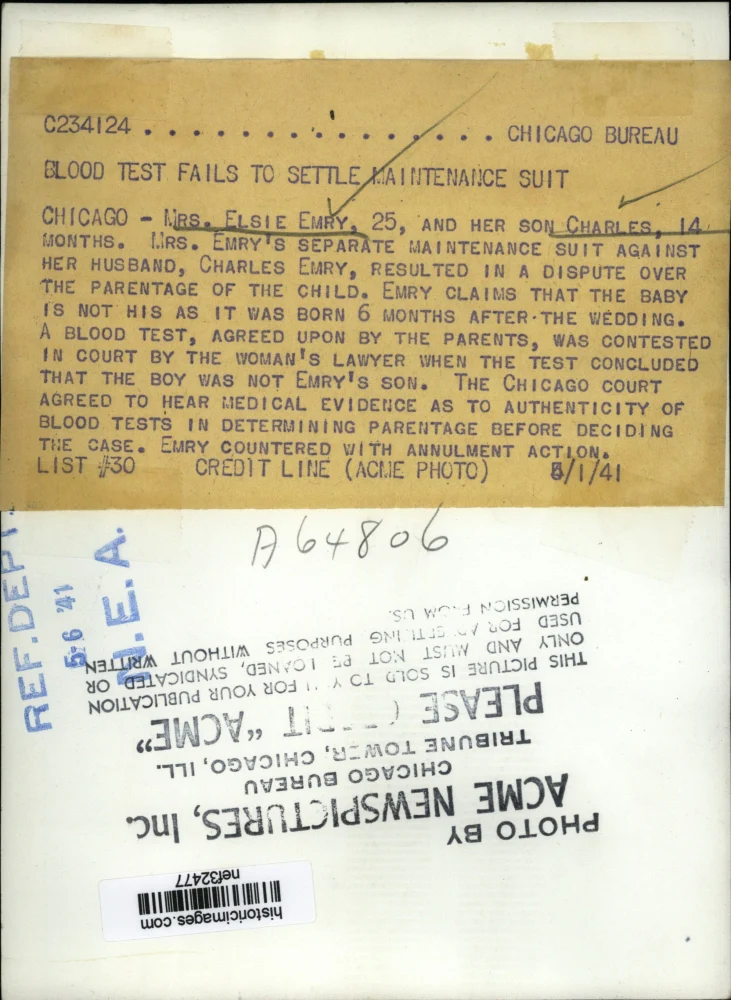 C234124 . . . . . . . . . . . . . . . . CHICAGO BUREAU
BLOOD TEST FAILS TO SETTLE MAINTENANCE SUIT
CHICAGO - MRS. ELSIE EMRY, 25, AND HER SON CHARLES, 14
MONTHS. MRS. EMRY'S SEPARATE MAINTENANCE SUIT AGAINST
HER HUSBAND, CHARLES EMRY, RESULTED IN A DISPUTE OVER
THE PARENTAGE OF THE CHILD. EMRY CLAIMS THAT THE BABY
IS NOT HIS AS IT WAS BORN 6 MONTHS AFTER THE WEDDING.
A BLOOD TEST, AGREED UPON BY THE PARENTS, WAS CONTESTED
IN COURT BY THE WOMAN'S LAWYER WHEN THE TEST CONCLUDED
THAT THE BOY WAS NOT EMRY'S SON. THE CHICAGO COURT
AGREED TO HEAR MEDICAL EVIDENCE AS TO AUTHENTICITY OF
BLOOD TESTS IN DETERMINING PARENTAGE BEFORE DECIDING
THE CASE. EMRY COUNTERED WITH ANNULMENT ACTION.
LIST #30 CREDIT LINE (ACME PHOTO) /1/41
A64806
REF. DEPT.
5 6 '41
N.E.A.
PHOTO BY
ACME NEWSPICTURES, Inc.
CHICAGO BUREAU
TRIBUNE TOWER, CHICAGO, ILL.
PLEASE "ACME"
THIS PICTURE IS SOLD TO FOR YOUR PUBLICATION
ONLY AND MUST NOT BE LOANED, SYNDICATED OR
USED FOR PURPOSES WITHOUT WRITTEN
PERMISSION FROM US.
historicimages.com
nef32477